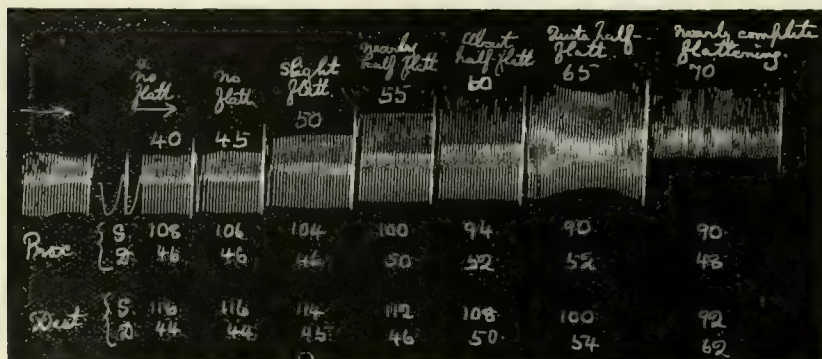 no flatt 40
no flatt. 45
Slight flatt. 50
nearly half flatt 55
About half flatt 60
Quite half flatt. 65
nearly complete flattening. 70
Prox S 108 106 104 100 94 90 90
D 46 46 46 50 52 52 48
Dist S 116 116 114 112 108 100 92
D 44 44 45 46 50 54 62